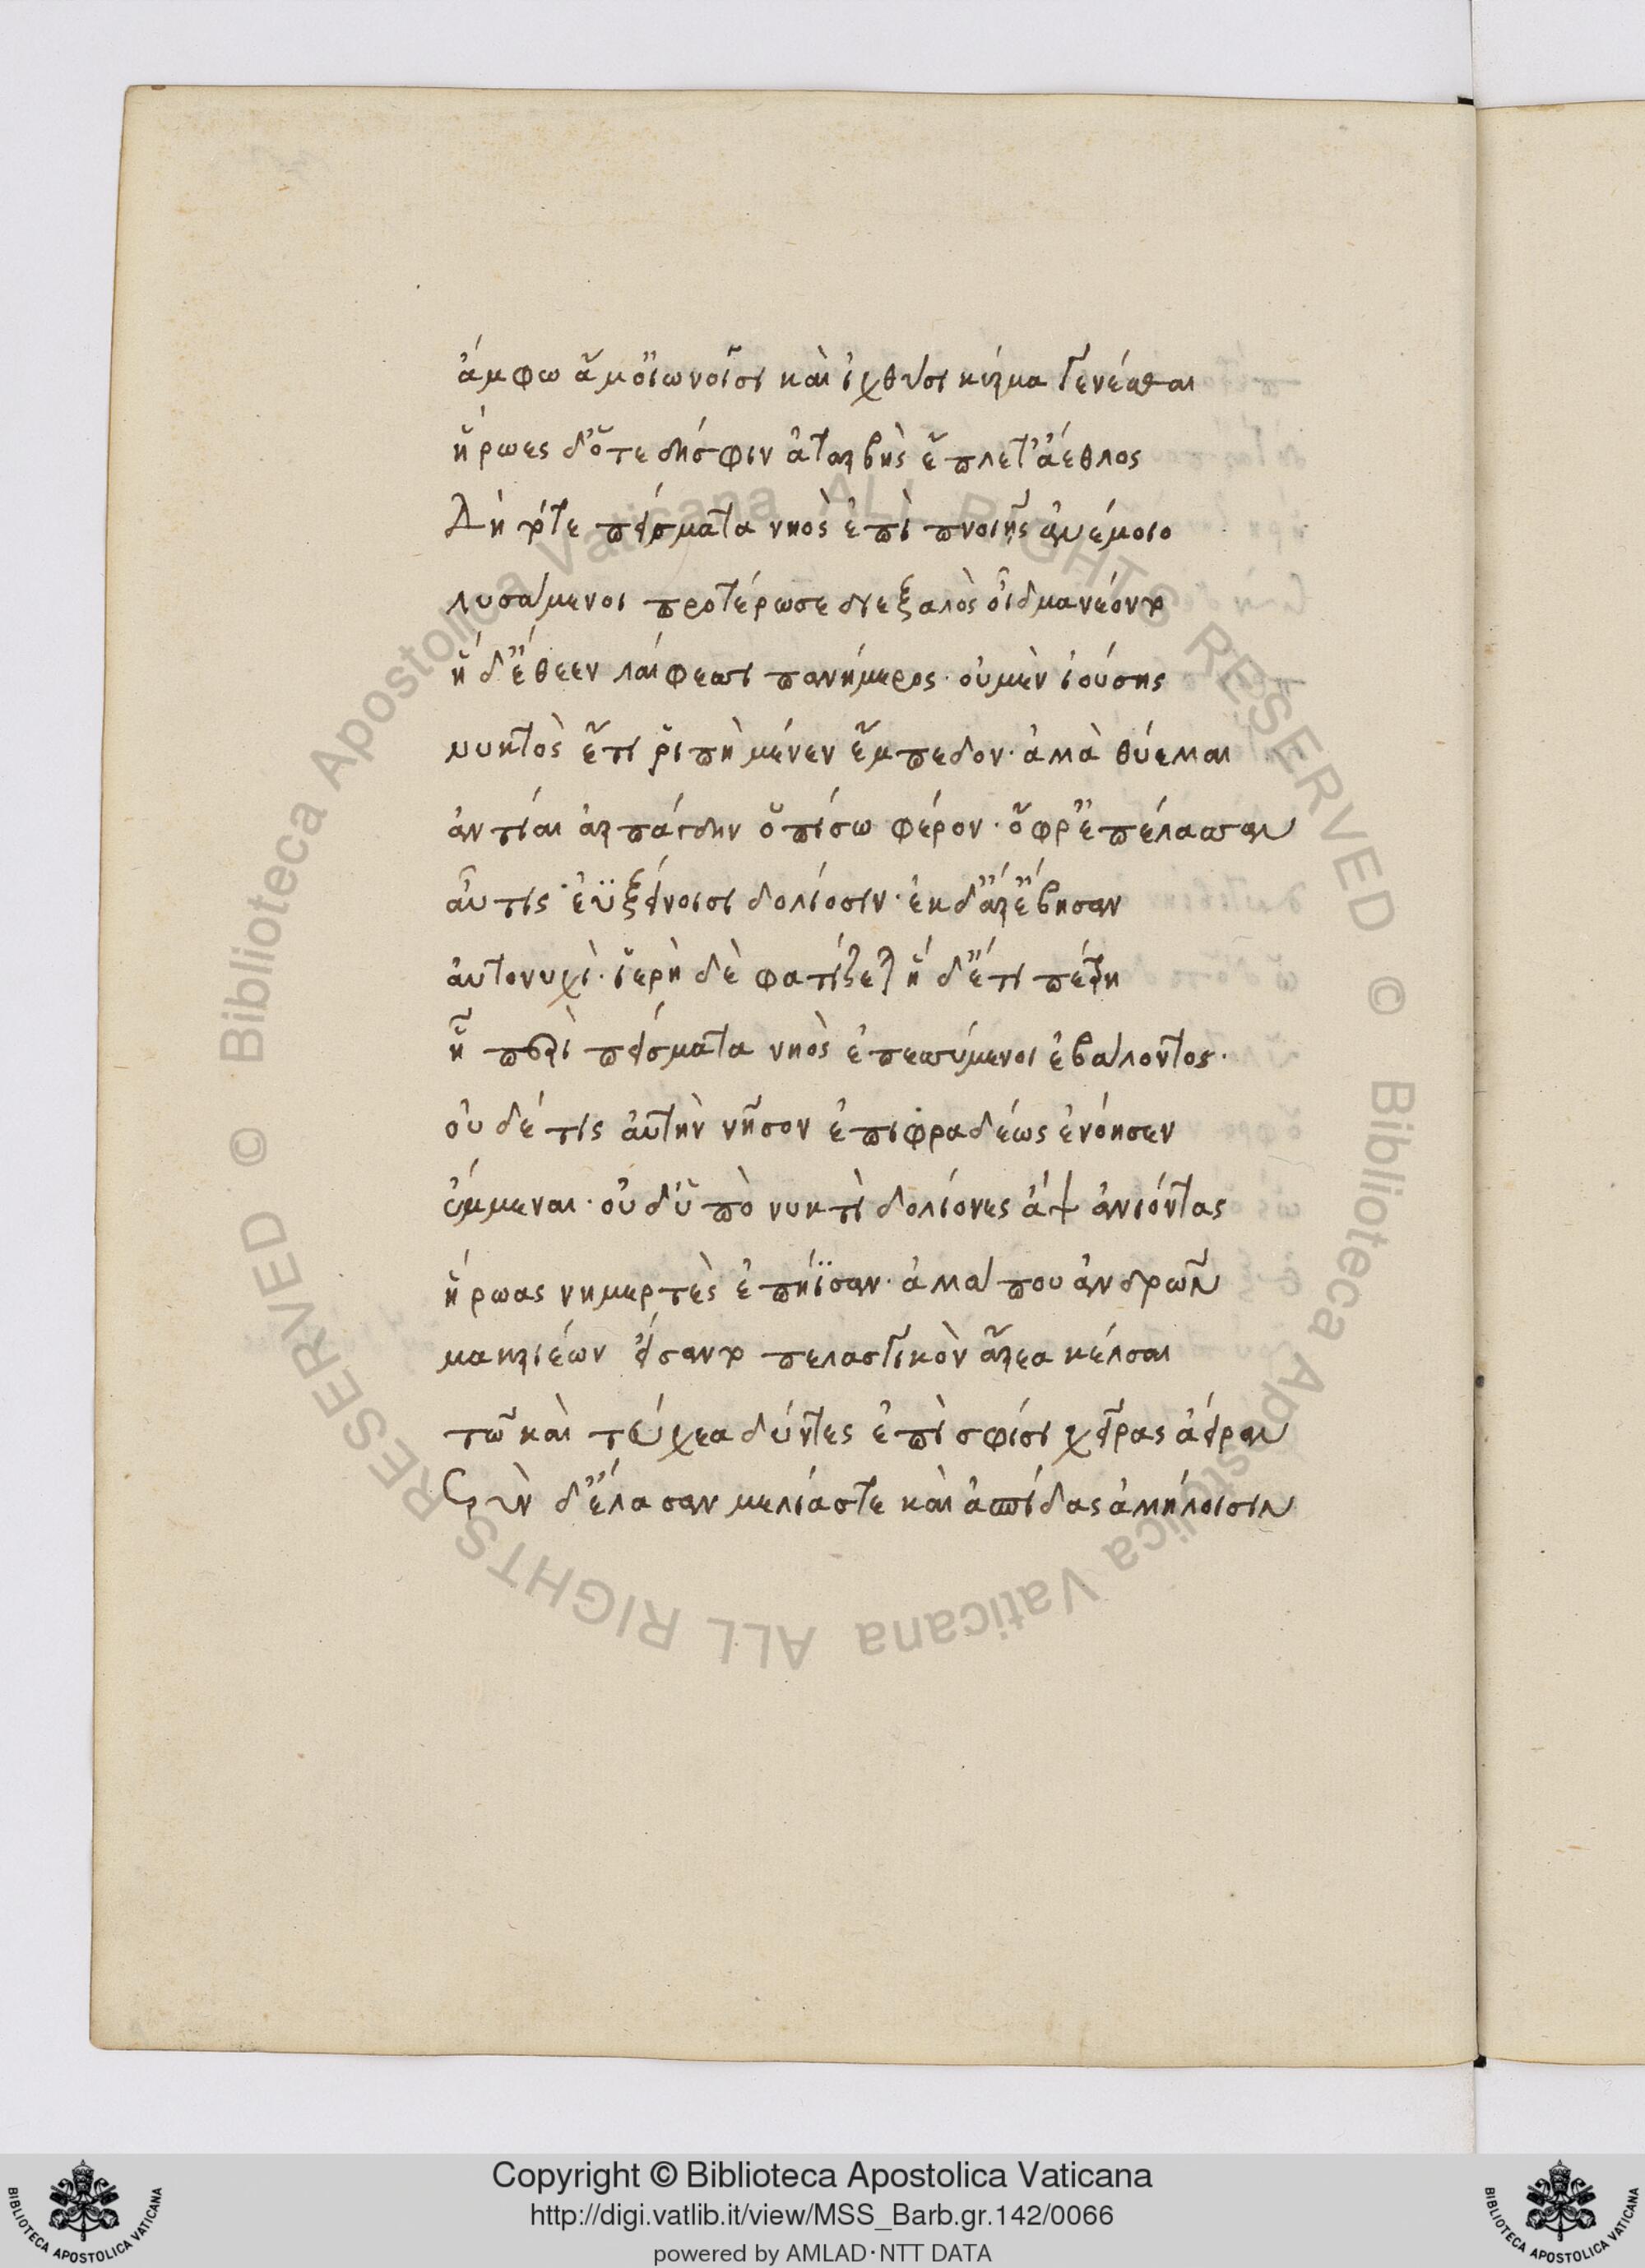 ἄμφω ἅμ' οἰωνοῖσι καὶ ἰχθύσι κύρμα γενέσθαι
ἥρωες δ' ὅτε δή σφιν ἀταρβὴς ἔπλετ' ἄεθλος
Δή ῥα τότε πείσματα νηὸς ἐπὶ πνοιῇς ἀνέμοιο
λυσάμενοι προτέρωσε διεξ ἁλὸς οἶδμα νέοντο
ἡ δ' ἔθεεν λαίφεσσι πανήμερος· οὐ μὲν ἰούσης
νυκτὸς ἔτι ῥιπὴ μένεν ἔμπεδον· ἀλλὰ θύελλαι
ἀντίαι ἁρπάγδην ὀπίσω φέρον· ὄφρ' ἐπέλασσαν
αὖτις ἐϋξείνοισι δολίοσιν· ἐκ δ' ἄρ' ἔβησαν
αὐτονυχὶ· ἱερὴ δὲ φατίζεται ἥδ' ἔτι πέτρη
ᾗ περὶ πείσματα νηὸς ἐπεσσύμενοι ἐβάλοντο·
οὐδέ τις αὐτὴν νῆσον ἐπιφραδέως ἐνόησεν
ἔμμεναι· οὐδ' ὑπὸ νυκτὶ δολίονες ἂψ ἀνιόντας
ἥρωας νημερτὲς ἐπήϊσαν· ἀλλά που ἀνδρῶν
μακριέων εἴσαντο πελασγικὸν ἄρεα κέλσαι
τῶ καὶ τεύχεα δύντες ἐπὶ σφίσι χεῖρας ἄειραν
Σὺν δ' ἔλασαν μελίας τε καὶ ἀσπίδας ἀλλήλοισιν
Copyright © Biblioteca Apostolica Vaticana
http://digi.vatlib.it/view/MSS_Barb.gr.142/0066
powered by AMLAD·NTT DATA